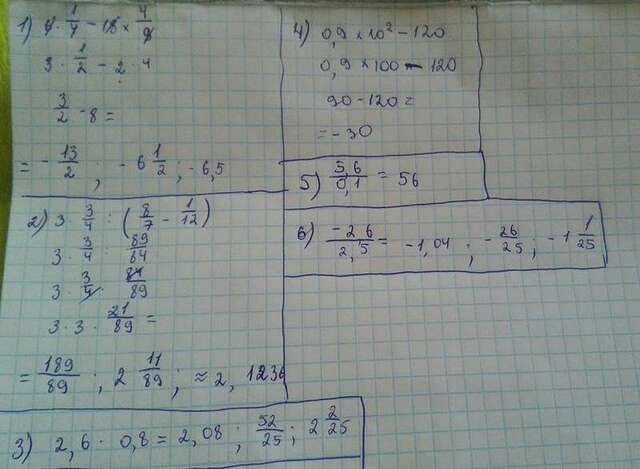 1) 6 · 1/4 - 18 × 4/9
3 · 1/2 - 2 · 4
3/2 - 8 =
= - 13/2 ; - 6 1/2 ; - 6,5
2) 3 · 3/4 : (8/7 - 1/12)
3 · 3/4 : 89/84
3 · 3/4 · 84/89
3 · 3 · 21/89 =
= 189/89 ; 2 11/89 ; ≈ 2,1236
3) 2,6 · 0,8 = 2,08 ; 52/25 ; 2 2/25
4) 0,9 × 10² - 120
0,9 × 100 - 120
90 - 120 =
= - 30
5) 5,6/0,1 = 56
6) -2,6/2,5 = -1,04 ; - 26/25 ; -1 1/25